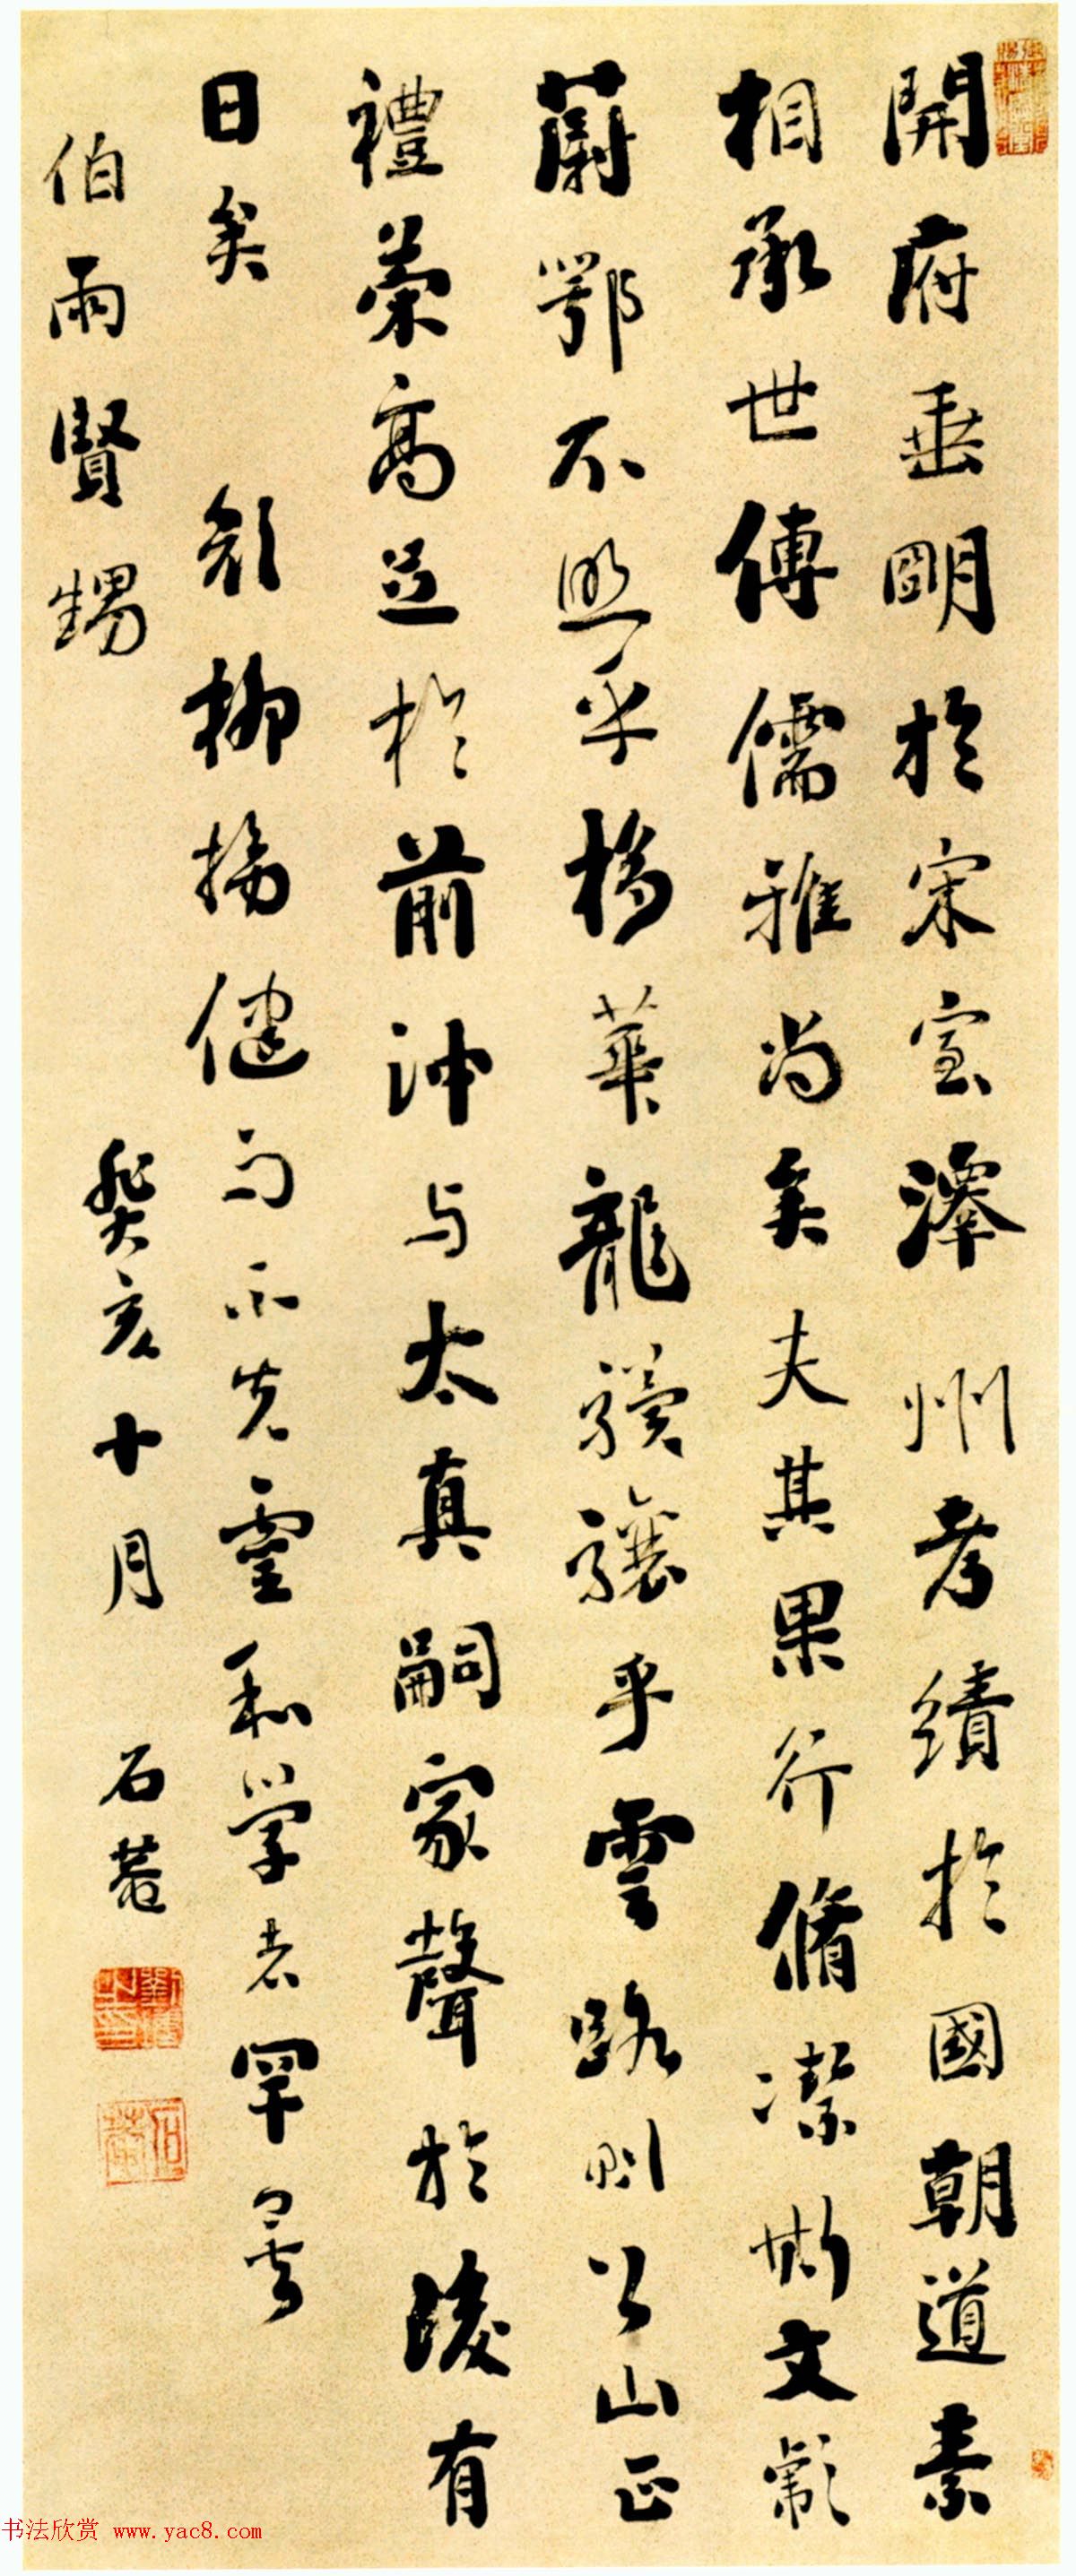 開府垂明於宋室澤州考績於國朝道素
相承世傳儒雅尚矣夫其果行脩潔斯文彪
蔚鄂不照乎棣華龍驥驤乎雲路則公山正
禮策高足於前沖與太真嗣家聲於後有
日矣 歐柳揚健句而不先靈和學者罕旻
伯雨賢甥
癸亥十月 石菴
书法欣赏 www.yac8.com